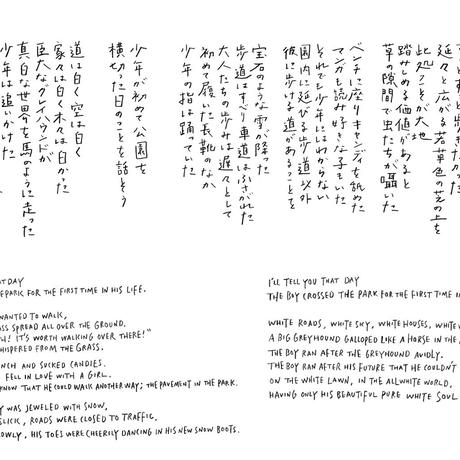 歩きたかった
延々と広がる若草色の芝の上を
此処こそが大地
踏みしめる価値があると
草の隙間で虫たちが囁いた
ベンチに座りキャンディを舐めた
マンガも読み好きな子もいた
それでも少年にはわからない
園内に延びる歩道以外
彼に歩ける道があることを
宝石のような雪が降った
歩道はすべり車道はふさがれた
大人たちの歩みは遅々として
初めて履いた長靴のなか
少年の指は踊っていた
少年が初めて公園を
横切った日のことを話そう
道は白く空は白く
家々は白く木々は白かった
巨大なグレイハウンドが
真白な世界を馬のように走った
少年は追いかけた
DAY
PARK FOR THE FIRST TIME IN HIS LIFE.
WANTED TO WALK,
SPREAD ALL OVER THE GROUND.
IT'S WORTH WALKING OVER THERE!"
WHISPERED FROM THE GRASS.
AND SUCKED CANDIES.
FELL IN LOVE WITH A GIRL.
KNOW THAT HE COULD WALK ANOTHER WAY; THE PAVEMENT IN THE PARK.
WAS JEWELED WITH SNOW,
SLICK, ROADS WERE CLOSED TO TRAFFIC.
HIS TOES WERE CHEERILY DANCING IN HIS NEW SNOW BOOTS.
I'LL TELL YOU THAT DAY
THE BOY CROSSED THE PARK FOR THE FIRST TIME
WHITE ROADS, WHITE SKY, WHITE HOUSES,
A BIG GREYHOUND GALLOPED LIKE A HORSE IN THE
THE BOY RAN AFTER THE GREYHOUND AVIDLY.
THE BOY RAN AFTER HIS FUTURE THAT HE COULDN'T
ON THE WHITE LAWN, IN THE ALL WHITE WORLD,
HAVING ONLY HIS BEAUTIFUL PURE WHITE SOUL